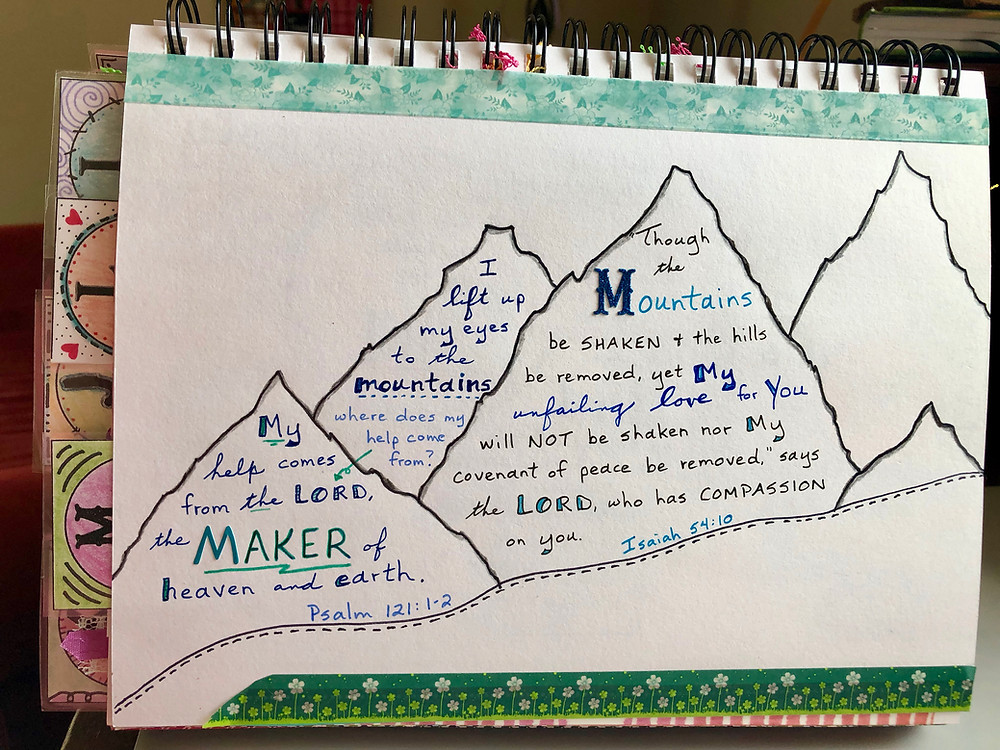 I
lift up
my eyes
to the
mountains
where does my
help come
from?
My
help comes
from the LORD,
the MAKER of
heaven and earth.
Psalm 121:1-2
"Though
the
Mountains
be SHAKEN + the hills
be removed, yet My
unfailing love for You
will NOT be shaken nor My
covenant of peace be removed," says
the LORD, who has COMPASSION
on you.
Isaiah 54:10
I
I
J
M